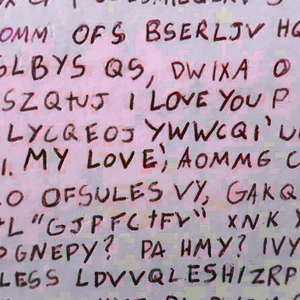 OMM OFS BSERLJV HQ
SLBYS QS, DWIXA O
SZQtUJ I LOVE YOU P
LYCQEOJ YWWCQI'U
I. MY LOVE, AOMMG C
O OFSULES VY, GAKQ
L "GJPFCtFV" XNK
OGNEPY? PA HMY? IVY
LESS LDVVQLESHIZRP